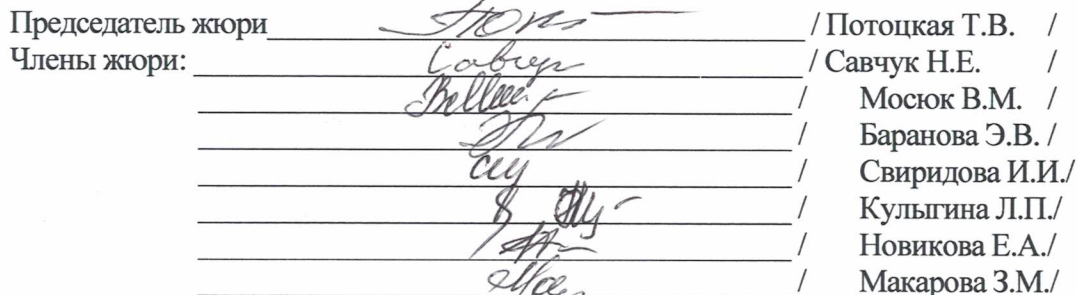 Председатель жюри / Потоцкая Т.В. /
Члены жюри: / Савчук Н.Е. /
/ Мосюк В.М. /
/ Баранова Э.В. /
/ Свиридова И.И./
/ Кулыгина Л.П./
/ Новикова Е.А./
/ Макарова З.М./